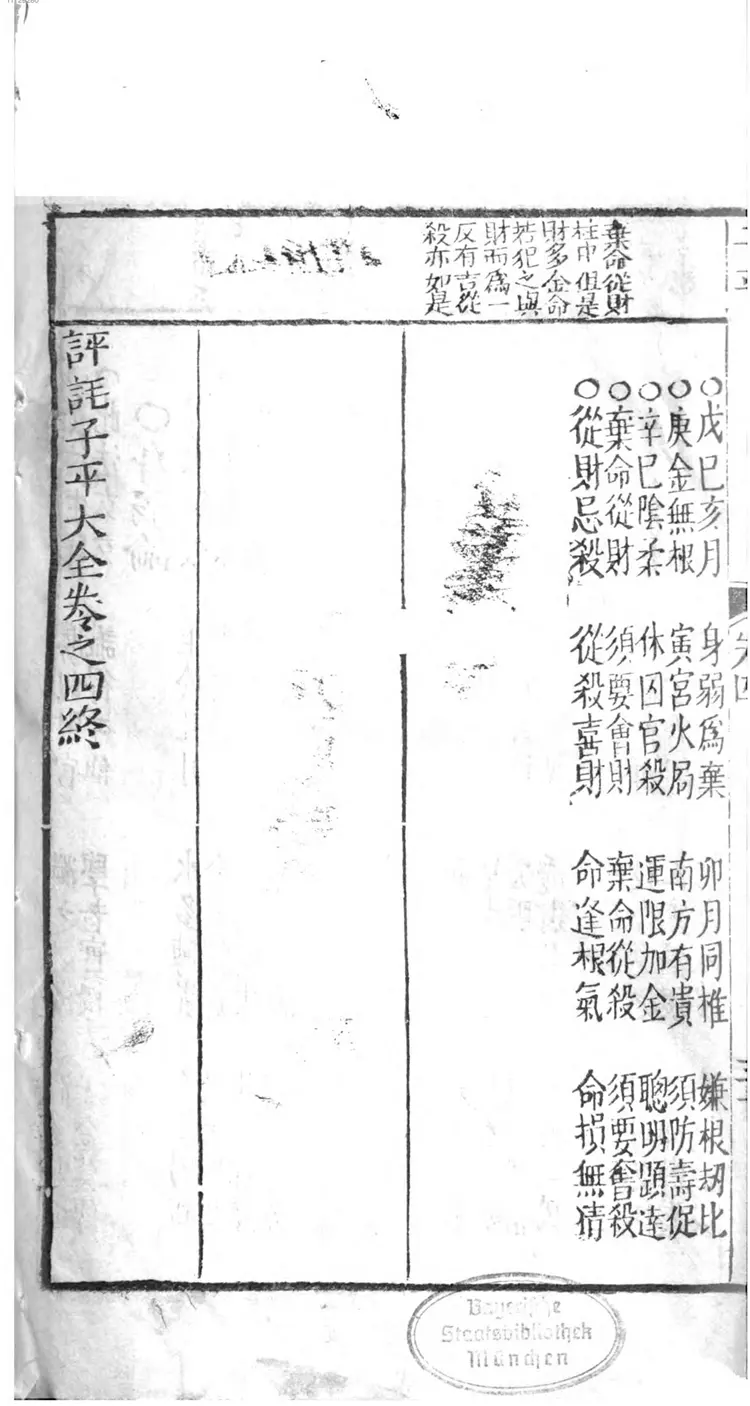 棄命從財
柱中但是
財多金命
若犯之與
財而為一
反有吉從
殺亦如是
○戊巳亥月 身弱爲棄 卯月同推 嫌根刼比
○庚金無根 寅宮火局 南方有貴 須防壽促
○辛巳陰柔 休囚官殺 運限加金 聰明顕達
○棄命從財 須要會財 棄命從殺 須要會殺
○從財忌殺 從殺喜財 命逢根氣 命損無猜
評註子平大全卷之四終
Bayerische
Staatsbibliothek
München